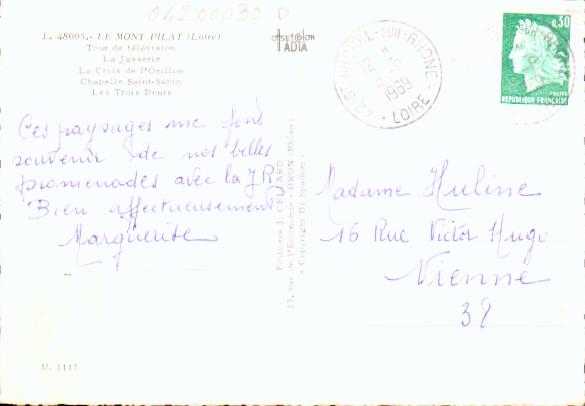 04200030 D
L. 48005.- LE MONT PILAT (Loire)
Tour de télévision
La Jasserie
La Croix de l'Oeillon
Chapelle Saint-Sabin
Les Trois Dents
ADIA
Ces paysages me font
souvenir de nos belles
promenades avec la J R
Bien affectueusement
Marguerite
Editions J. CELLARD
13, rue de l'Economie - BRON (Rhône)
« Copyright By Spadem »
42 ST MICHEL-SUR-RHONE
12 H
1969
LOIRE
0,30
POSTES
REPUBLIQUE FRANCAISE
Madame Huline
16 Rue Victor Hugo
Vienne
38
U. 1117